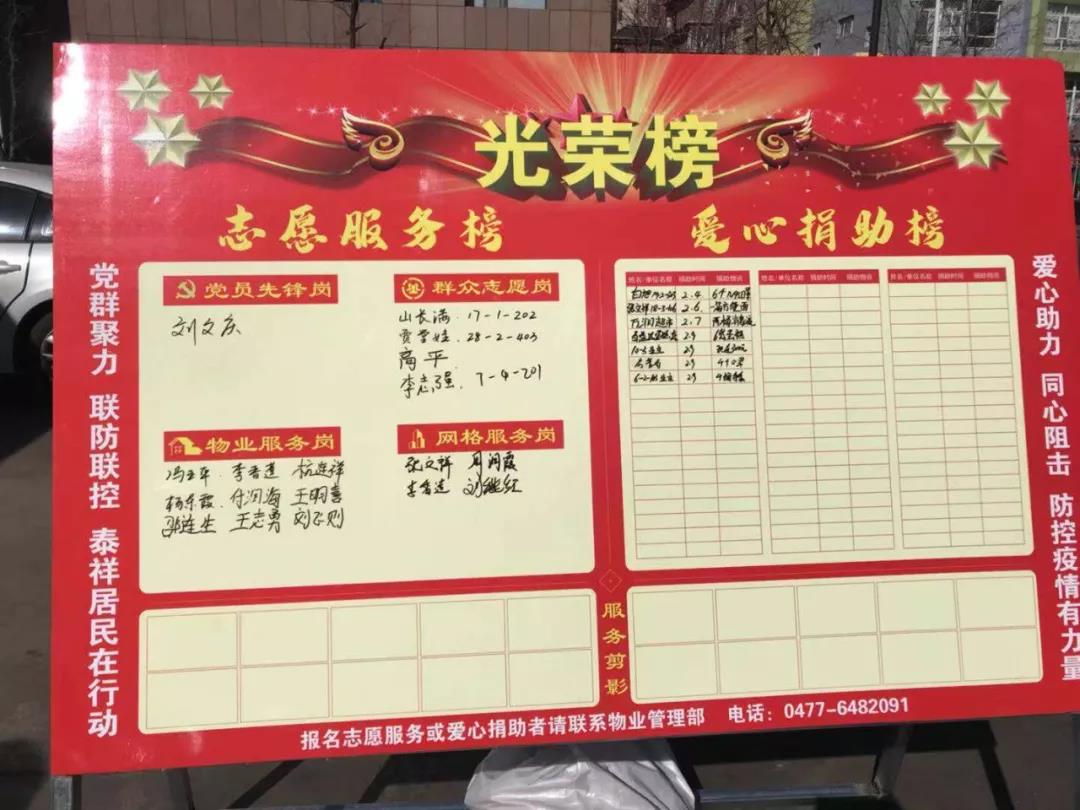 光荣榜
志愿服务榜
爱心捐助榜
党群聚力 联防联控 泰祥居民在行动
党员先锋岗
刘文庆
群众志愿岗
山长满. 17-1-202
贾学娃. 28-2-403
高平
李志强. 7-4-201
物业服务岗
李香莲
杨东霞. 付润海 王明喜
邬连生 王志勇 刘正则
网格服务岗
张文祥 周润霞
李香莲 刘继红
姓名/单位名称 捐助时间 捐助物资 姓名/单位名称 捐助时间 捐助物资 姓名/单位名称 捐助时间 捐助物资
2.4.
2.6.
2.7
29
29
29
29
爱心助力 同心阻击 防控疫情有力量
服务剪影
报名志愿服务或爱心捐助者请联系物业管理部 电话：0477-6482091